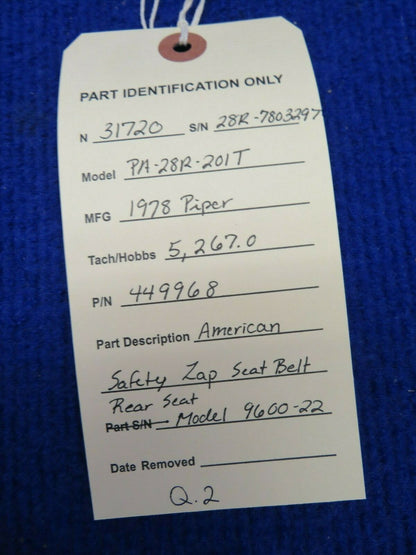 PART IDENTIFICATION ONLY
N 31720 S/N 28R-7803297
Model PA-28R-201T
MFG 1978 Piper
Tach/Hobbs 5,267.0
P/N 449968
Part Description American
Safety Zap Seat Belt
Rear Seat
Part S/N Model 9600-22
Date Removed
Q.2